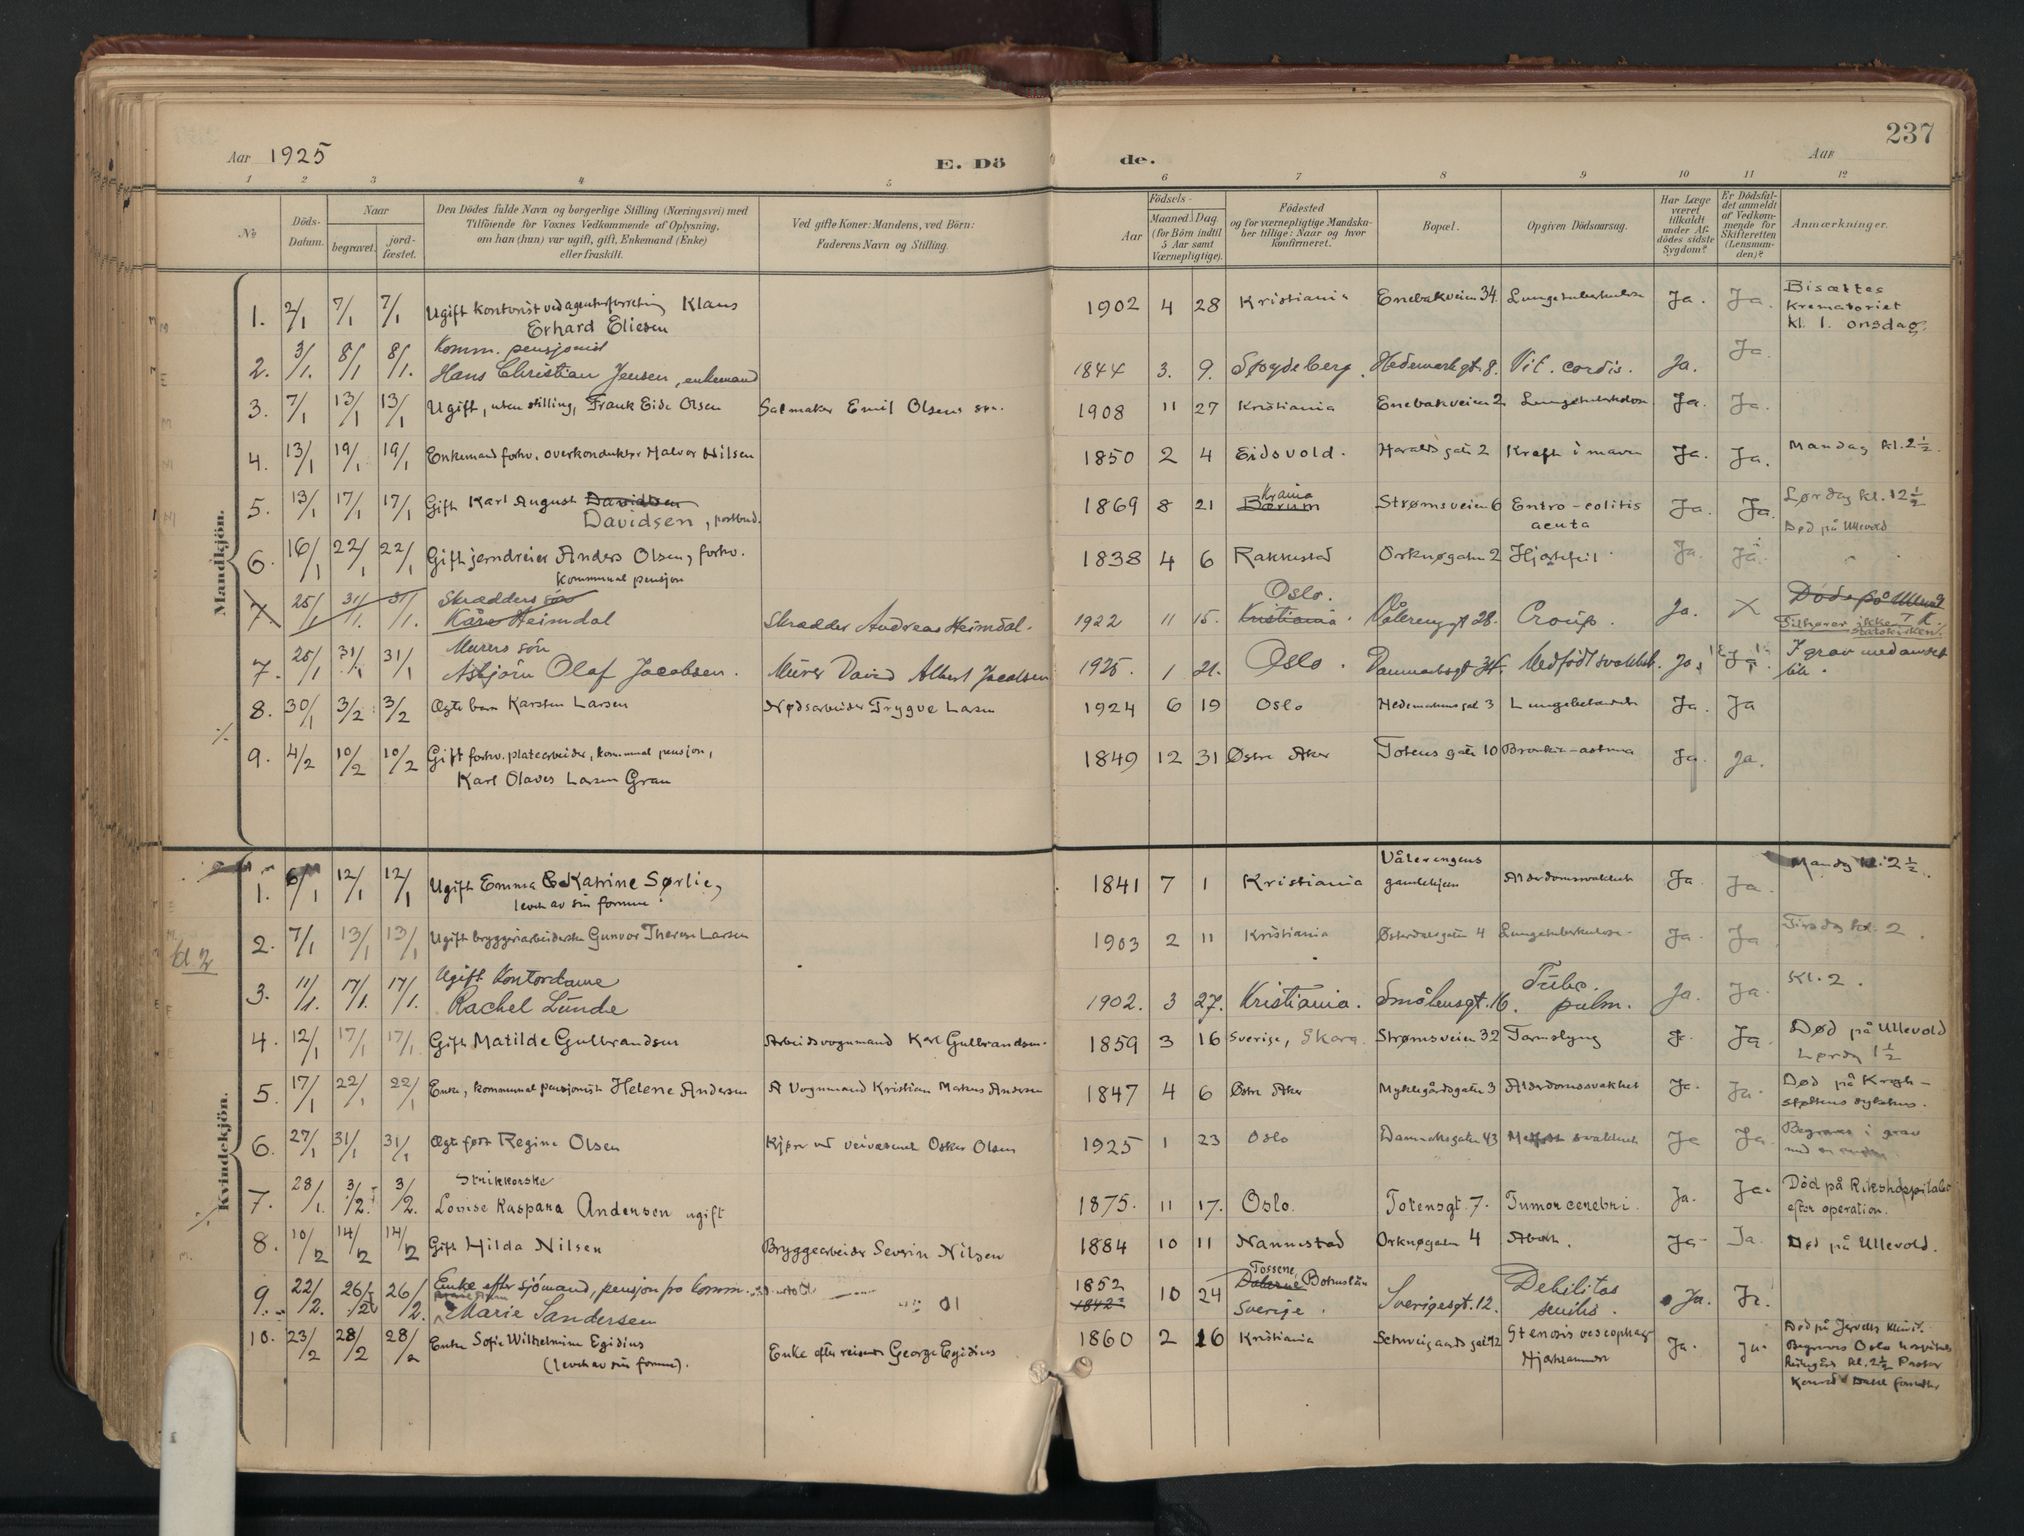 237
Aar 1925
E. Dö
de.
Aar
1 2 3 4 5 6 7 8 9 10 11 12
№
Döds-Datum.
Naar
begravet.
jord-fæstet.
Den Dödes fulde Navn og borgerlige Stilling (Næringsvei) med
Tilföiende for Voxnes Vedkommende af Oplysning,
om han (hun) var ugift, gift, Enkemand (Enke)
eller fraskilt.
Ved gifte Koner: Mandens, ved Börn:
Faderens Navn og Stilling.
Födsels-
Aar
Maaned. Dag.
(for Börn indtil
5 Aar samt
Værnepligtige).
Födested
og for værnepligtige Mandska-
ber tillige: Naar og hvor
Konfirmeret.
Bopæl.
Opgiven Dödsaarsag.
Har Læge
været
tilkaldt
under Af-
dödes sidste
Sygdom?
Er Dödsfal-
det anmeldt
af Vedkom-
mende for
Skifteretten
(Lensman-
den)?
Anmærkninger.
Mandkjön.
1. 2/1 7/1 7/1 Ugift kontorist ved agenturforretning Klaus
Erhard Eliesen
1902 4 28 Kristiania Enebakveien 34. Lungetuberkulose Ja. Ja.
Bisættes
Krematoriet
kl. 1. onsdag.
2. 3/1. 8/1 8/1. Komm. pensjonist
Hans Christian Jensen, enkemand
1844 3. 9. Spydeberg. Hedemarkgt. 8. Vit. cordis. Ja. Ja.
3. 7/1 13/1 13/1 Ugift, uten stilling, Frank Eide Olsen Salmaker Emil Olsens søn.
1908 11 27 Kristiania Enebakveien 2 Lungetuberkulose Ja. Ja.
4. 13/1 19/1 19/1 Enkemand forhv. overkonduktør Halvor Nilsen
1850 2 4 Eidsvold. Haralds gate 2 Kreft i maven Ja. Ja. Mandag kl. 2 ½.
5. 13/1 17/1 17/1 Gift Karl August Davidsen
Davidsen, postbud.
1869 8 21 Krania
Bærum Strømsveien 6 Entro-colitis
acuta Ja. Ja. Lørdag kl. 12 ½
Død på Ullevold
6. 16/1 22/1 22/1 Gift jerndreier Anders Olsen, forhv.
kommunal pensjon
1838 4 6 Rakkestad Orknøgaten 2 Hjertefeil. Ja. Ja.
7. 25/1 31/1. 31/1. Skrædders søn
Kåre Heimdal Skrædder Andreas Heimdal.
1922 11 15. Oslo.
Kristiania Vålerenggt 28. Croup. Ja.
Døde på Ullevål
Tilhører ikke
statskirken.
7. 25/1 31/1 31/1 Murers søn
Asbjörn Olaf Jacobsen. Murer David Albert Jacobsen
1925. 1 21. Oslo. Danmarksgt. 34. Medfödt svakhet. Ja. Ja. I grav med annet
lik.
8. 30/1 3/2 3/2 Ægte barn Karsten Larsen Nødsarbeider Trygve Larsen
1924 6 19 Oslo Hedemarkens gate 3 Lungebetændelse Ja. Ja
9. 4/2 10/2 10/2 Gift forhv. platearbeider, kommunal pensjon,
Karl Olaves Larsen Gran
1849 12 31 Østre Aker Totens gate 10 Bronkit-astma Ja. Ja.
Kvindekjön.
1. 6/1 12/1 12/1 Ugift Emma Katrine Sørlie,
levet av sin formue.
1841 7 1 Kristiania Vålerengens
gamlehjem Alderdomssvakhet Ja. Ja. Mandag kl. 2 ½.
kl. 2
2. 7/1 13/1 13/1 Ugift bryggeriarbeiderske Gunvor Therese Larsen
1903 2 11 Kristiania Østerdalsgaten 4 Lungetuberkulose. Ja. Ja Tirsdag kl. 2.
3. 11/1. 17/1. 17/1. Ugift Kontordame
Rachel Lunde
1902. 3 27. Kristiania. Smålensgt. 16. Tubc.
pulm. Ja. Ja. Kl. 2.
4. 12/1 17/1 17/1 Gift Matilde Gulbrandsen Arbeidsvognmand Karl Gulbrandsen.
1859 3 16 Sverige, Skara. Strømsveien 32 Tarmslyng Ja. Ja. Død på Ullevold
Lørdag 1 ½
5. 17/1 22/1 22/1 Enke, kommunal pensjonist Helene Andersen A Vognmand Kristian Markus Andersen
1847 4 6 Østre Aker Myklegårdsgaten 3 Alderdomssvakhet Ja. Ja. Død på Krogh-
støttens sykehus.
6. 27/1 31/1 31/1 Ægte født Regine Olsen Kjører ved veivæsenet Oskar Olsen
1925 1 23 Oslo Danmarksgaten 43 Medfødt svakhet Ja Ja. Begraves i grav
med en anden
7. 28/1. 3/2. 3/2. Strikkerske
Lovise Kaspara Andersen ugift
1875. 11 17. Oslo. Totensgt. 7. Tumor cerebri. Ja. Ja. Död på Rikshospitalet
efter operation.
8. 10/2 14/2 14/2 Gift Hilda Nilsen Bryggearbeider Severin Nilsen
1884 10 11 Nannestad Orknøgaten 4 Abort. Ja. Ja. Død på Ullevold.
9. 22/2. 26/2 26/2. Enke efter sjömand, pensjon fra komm.
Marie Sandersen
1852
1842 10 24 Tossene, Bohuslän
Sverige. Sverigesgt. 12. Debilitas
senilis. Ja. Ja.
10. 23/2 28/2 28/2 Enke Sofie Wilhelmine Egidius
(levet av sin formue). Enke efter reisende George Egidius
1860 2 16 Kristiania Schweigaards gate 92 Stenosis oesophagi
Hjertelammelse Ja. Ja. Død på Jervells klinik.
Begraves Oslo hospitals
kirkegård kl. 2 ½ Pastor
Konrad Dahl forretter